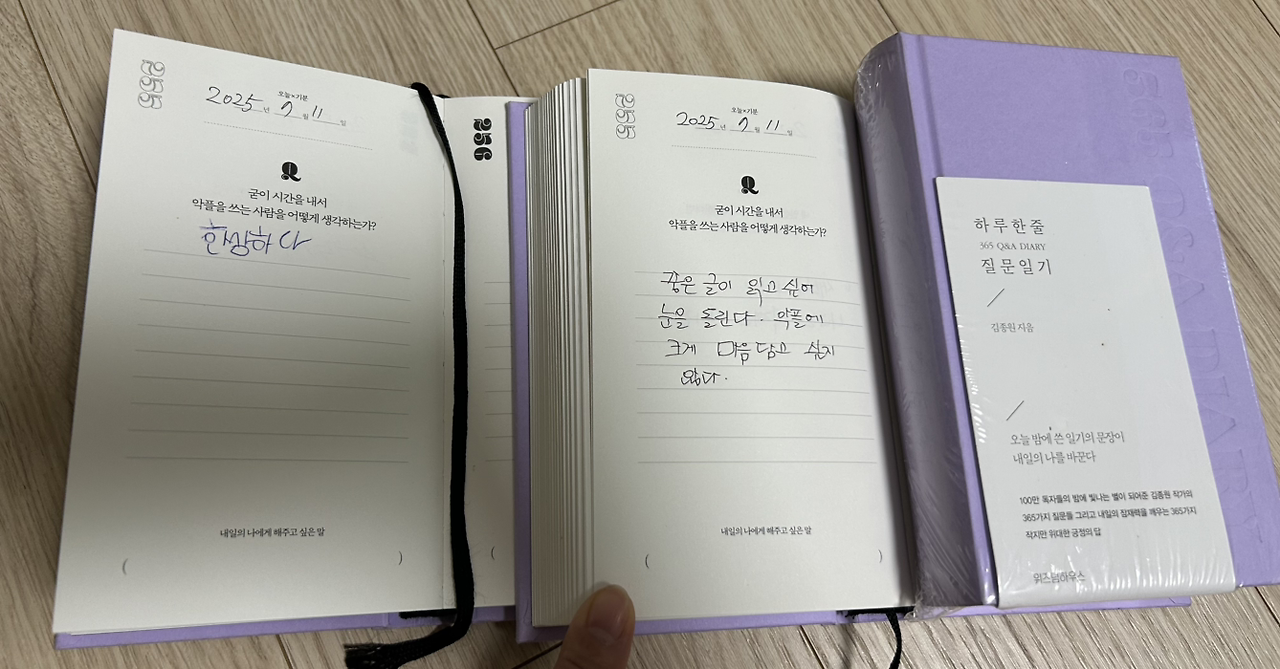 255
오늘×기분
2025년 7월 11일
Q
굳이 시간을 내서
악플을 쓰는 사람을 어떻게 생각하는가?
한심하다
내일의 나에게 해주고 싶은 말
( )
256
(
255
오늘×기분
2025년 7월 11일
Q
굳이 시간을 내서
악플을 쓰는 사람을 어떻게 생각하는가?
좋은 글이 읽고 싶어
눈을 돌린다. 악플에
크게 마음 담고 싶지
않다.
내일의 나에게 해주고 싶은 말
( )
365 Q&A DIARY
하루 한 줄
365 Q&A DIARY
질문 일기
김종원 지음
오늘 밤에 쓴 일기의 문장이
내일의 나를 바꾼다
100만 독자들의 밤에 빛나는 별이 되어준 김종원 작가의
365가지 질문들 그리고 내일의 잠재력을 깨우는 365가지
작지만 위대한 긍정의 답
위즈덤하우스